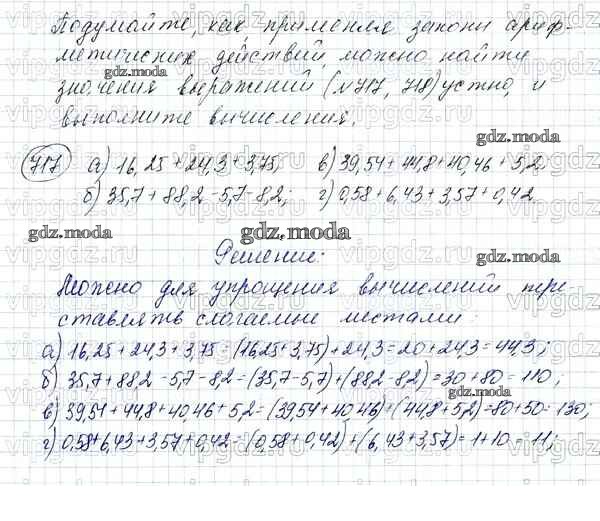 Подумайте, как, применяя законы ариф-
метических действий, можно найти
gdz.moda
gdz.moda
значения выражений (№717, 718) устно, и
выполните вычисления.
gdz.moda
717 а) 16,25 + 24,3 + 3,75; в) 39,54 + 44,8 + 40,46 + 5,2
б) 35,7 + 88,2 - 5,7 - 8,2; г) 0,58 + 6,43 + 3,57 + 0,42.
gdz.moda
gdz.moda
gdz.moda
Решение:
Можно для упрощения вычислений пере-
ставлять слагаемые местами:
gdz.moda
а) 16,25 + 24,3 + 3,75 = (16,25 + 3,75) + 24,3 = 20 + 24,3 = 44,3;
б) 35,7 + 88,2 - 5,7 - 8,2 = (35,7 - 5,7) + (88,2 - 8,2) = 30 + 80 = 110;
gdz.moda
в) 39,54 + 44,8 + 40,46 + 5,2 = (39,54 + 40,46) + (44,8 + 5,2) = 80 + 50 = 130;
г) 0,58 + 6,43 + 3,57 + 0,42 = (0,58 + 0,42) + (6,43 + 3,57) = 1 + 10 = 11;
gdz.moda